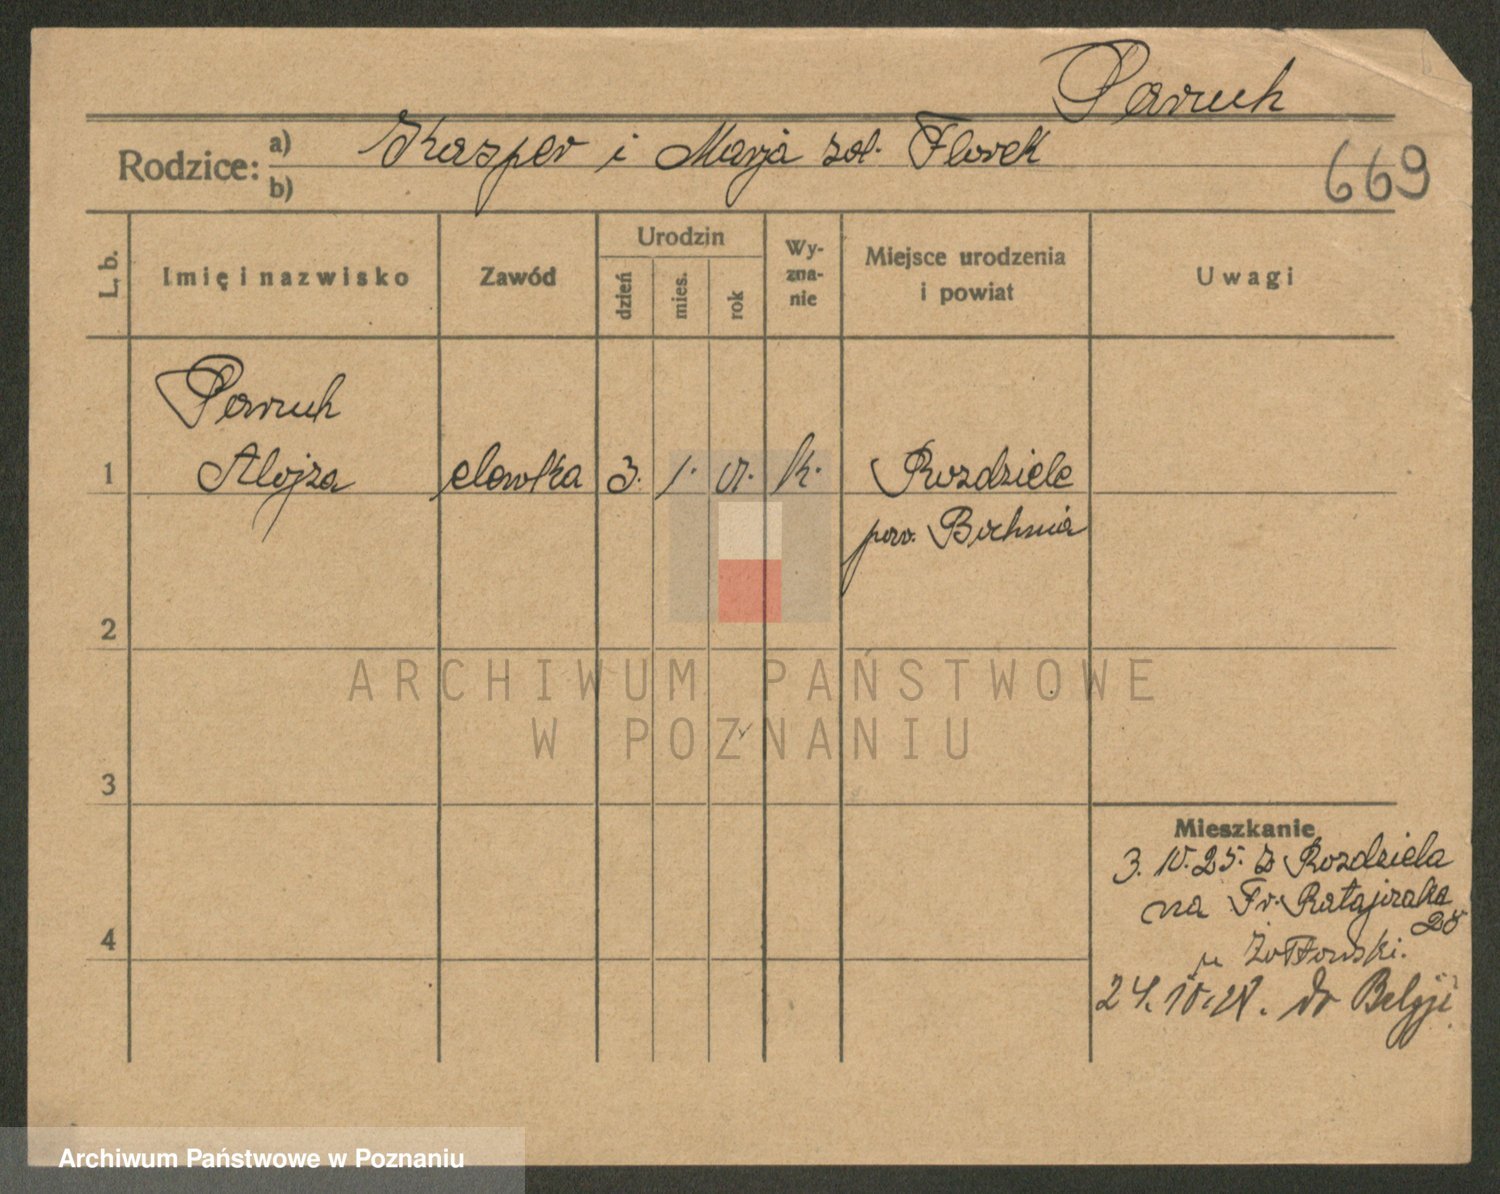 Paruch
Rodzice: a) Kasper i Marja zd. Florek
b)
669
L. b.
Imię i nazwisko
Zawód
Urodzin
dzień
mies.
rok
Wy-
zna-
nie
Miejsce urodzenia
i powiat
Uwagi
Paruch
1 Alojza 3. 1. k. Rozdziele
pow. Bochnia
2
3
4
Mieszkanie
3. 10. 25. z Rozdziela
na Fr. Ratajczaka
u Żółtowski.
24. do Belgji
ARCHIWUM PAŃSTWOWE
W POZNANIU
Archiwum Państwowe w Poznaniu